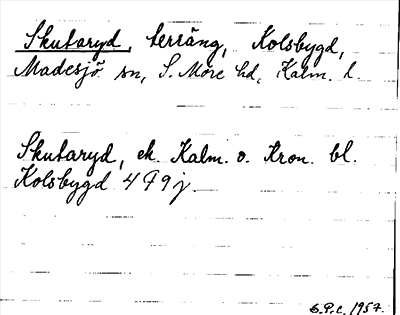 Skutaryd, terräng, Kolsbygd,
Madesjö sn, S. Möre hd, Kalm. l.
Skutaryd, ek. Kalm. o. Kron. bl.
Kolsbygd 4 F 9 j
S.P.c. 1957.